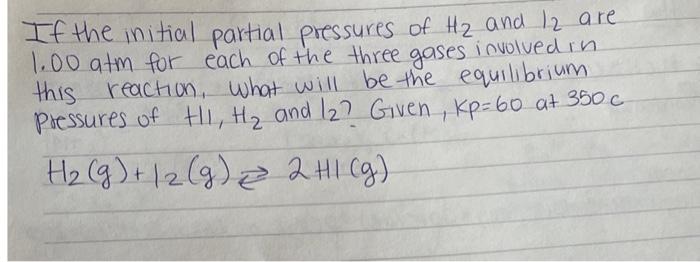 If the initial partial pressures of H2 and I2 are
1.00 atm for each of the three gases involved in
this reaction, what will be the equilibrium
pressures of HI, H2 and I2? Given, Kp=60 at 350 c
H2(g)+I2(g) ⇄ 2HI(g)